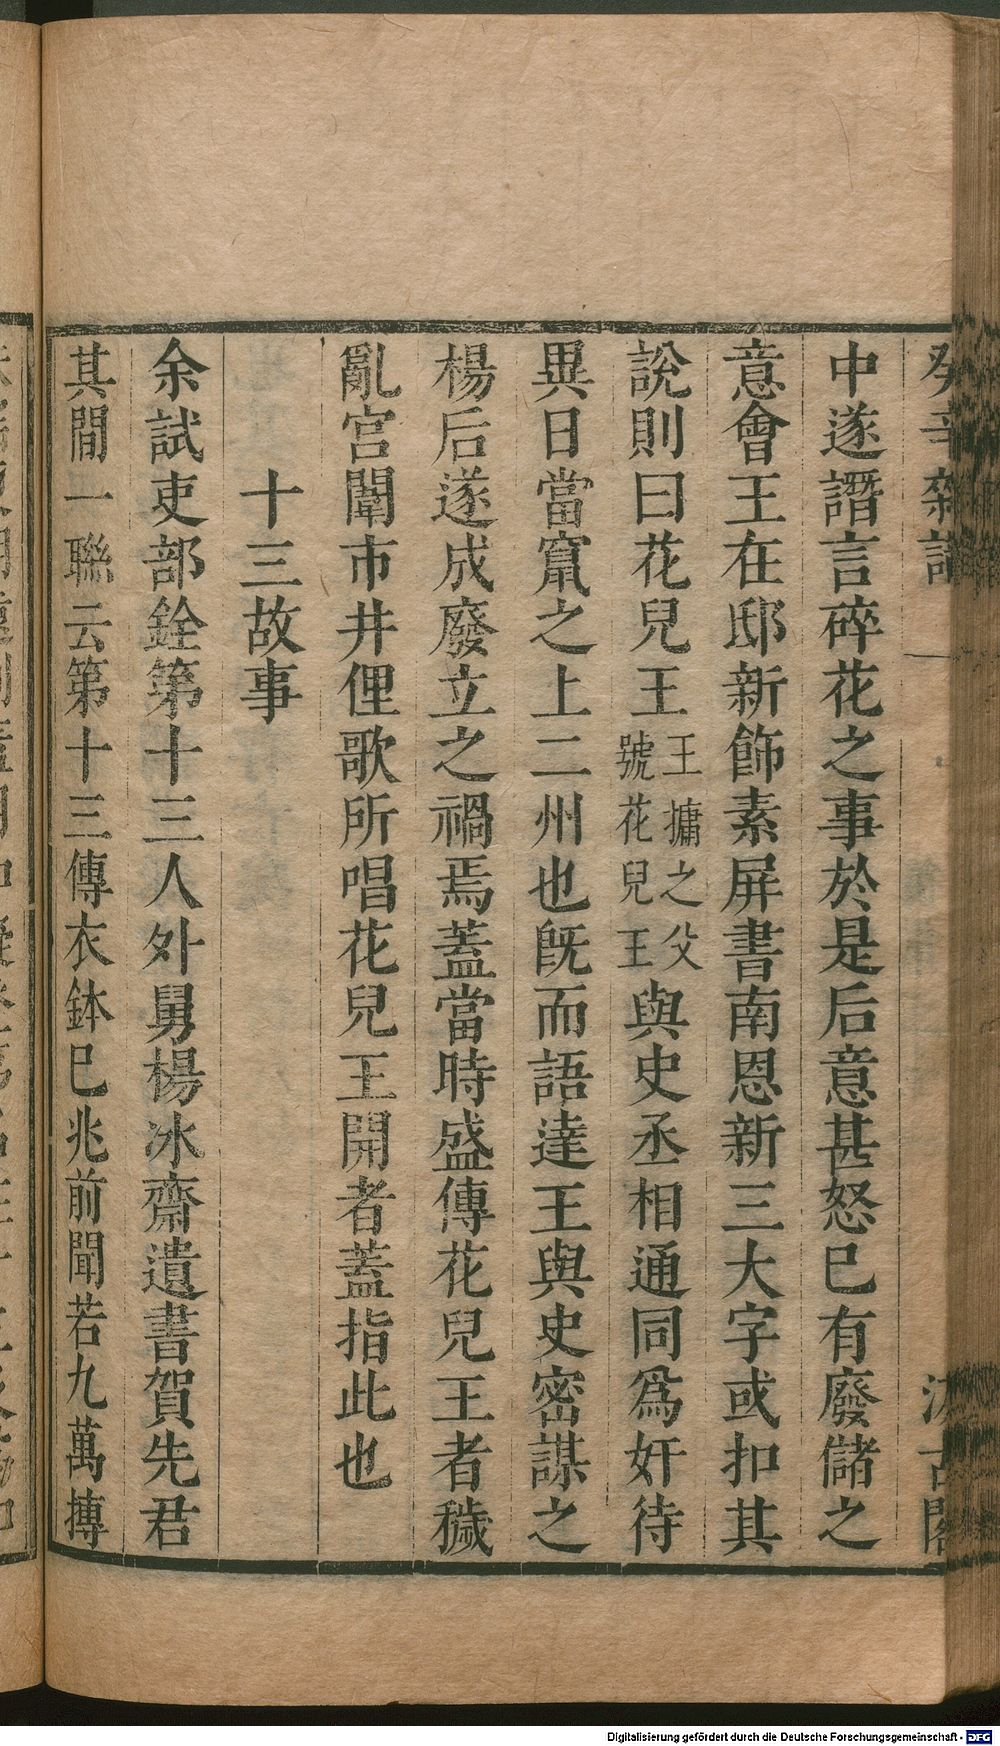 癸辛雜識
汲古閣
中遂譖言碎花之事於是后意甚怒已有廢儲之
意會王在邸新飾素屏書南恩新三大字或扣其
說則曰花兒王王墉之父號花兒王與史丞相通同爲奸待
異日當竄之上二州也旣而語達王與史密謀之
楊后遂成廢立之禍焉蓋當時盛傳花兒王者穢
亂宮闈市井俚歌所唱花兒王開者蓋指此也
十三故事
余試吏部銓第十三人外舅楊冰齋遺書賀先君
其間一聯云第十三傳衣鉢已兆前聞若九萬摶
Digitalisierung gefördert durch die Deutsche Forschungsgemeinschaft - DFG